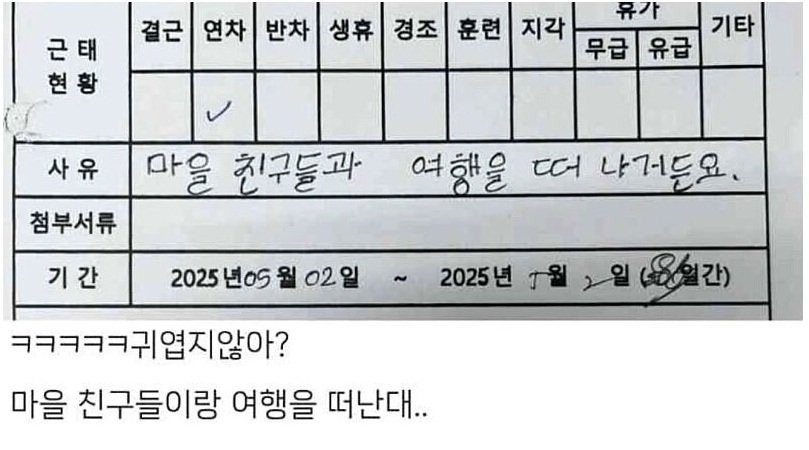 근태현황 결근 연차 반차 생휴 경조 훈련 지각 휴가 기타
무급 유급
✓
사유 마을 친구들과 여행을 떠나거든요.
첨부서류
기간 2025년 05월 02일 ~ 2025년 5월 2일 ( 일간)
ㅋㅋㅋㅋㅋ귀엽지않아?
마을 친구들이랑 여행을 떠난대..